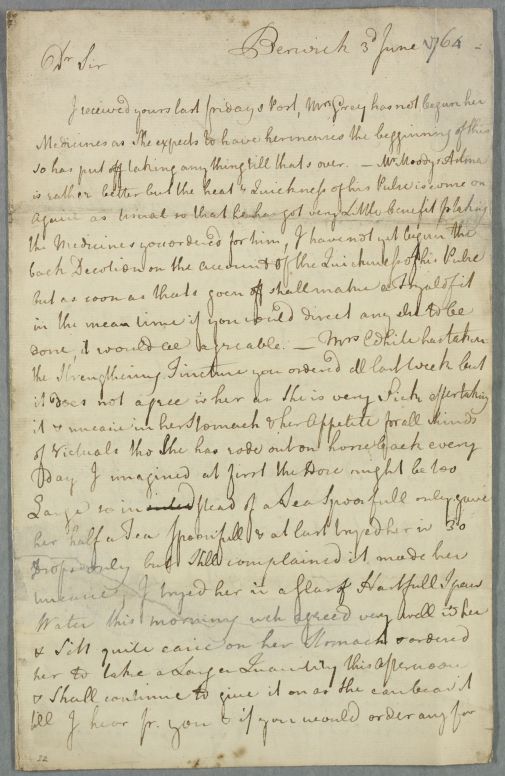 Berwick 3d June 1764
Dr Sir
I received yours last fridays Post, Mrs Grey has not begun her
Medicines as She expects to have her menses the beggining of this
so has put off taking any thing till thats over. — Mr Moodys Astma
is rather better but the heat & Quickness of his Pulse is come on
again as usual so that he has got very Little benefit by taking
the Medicines you ordered for him, I have not yet begun the
back Decotion on the account of the Quickness of his Pulse
but as soon as thats goen off shall make a tryal of it
in the mean time if you would direct any else to be
done, it would be agreable. — Mrs White has taken
the Strengthening Tincture you ordered all last week but
it does not agree is her as She is very Sick after taking
it & uneasie in her Stomach & her Appetite for all kinds
of Victuals tho She has rode out on horse back every
Day I imagined at first the Dose might be too
Large so in stead of a Tea Spoonfull only gave
her half a Tea Spoonfull & at last tryed her in 30
Drops only but Still complained it made her
uneasie I tryed her in a Glass of Hartfull Spaw
Water this morning wch agreed very well is her
& Sitt quite easie on her Stomach & ordered
her to take a Larger Quantity this afternoon
& Shall continue to give it on as She can bear it
till I hear fr. you & if you would order any for
52